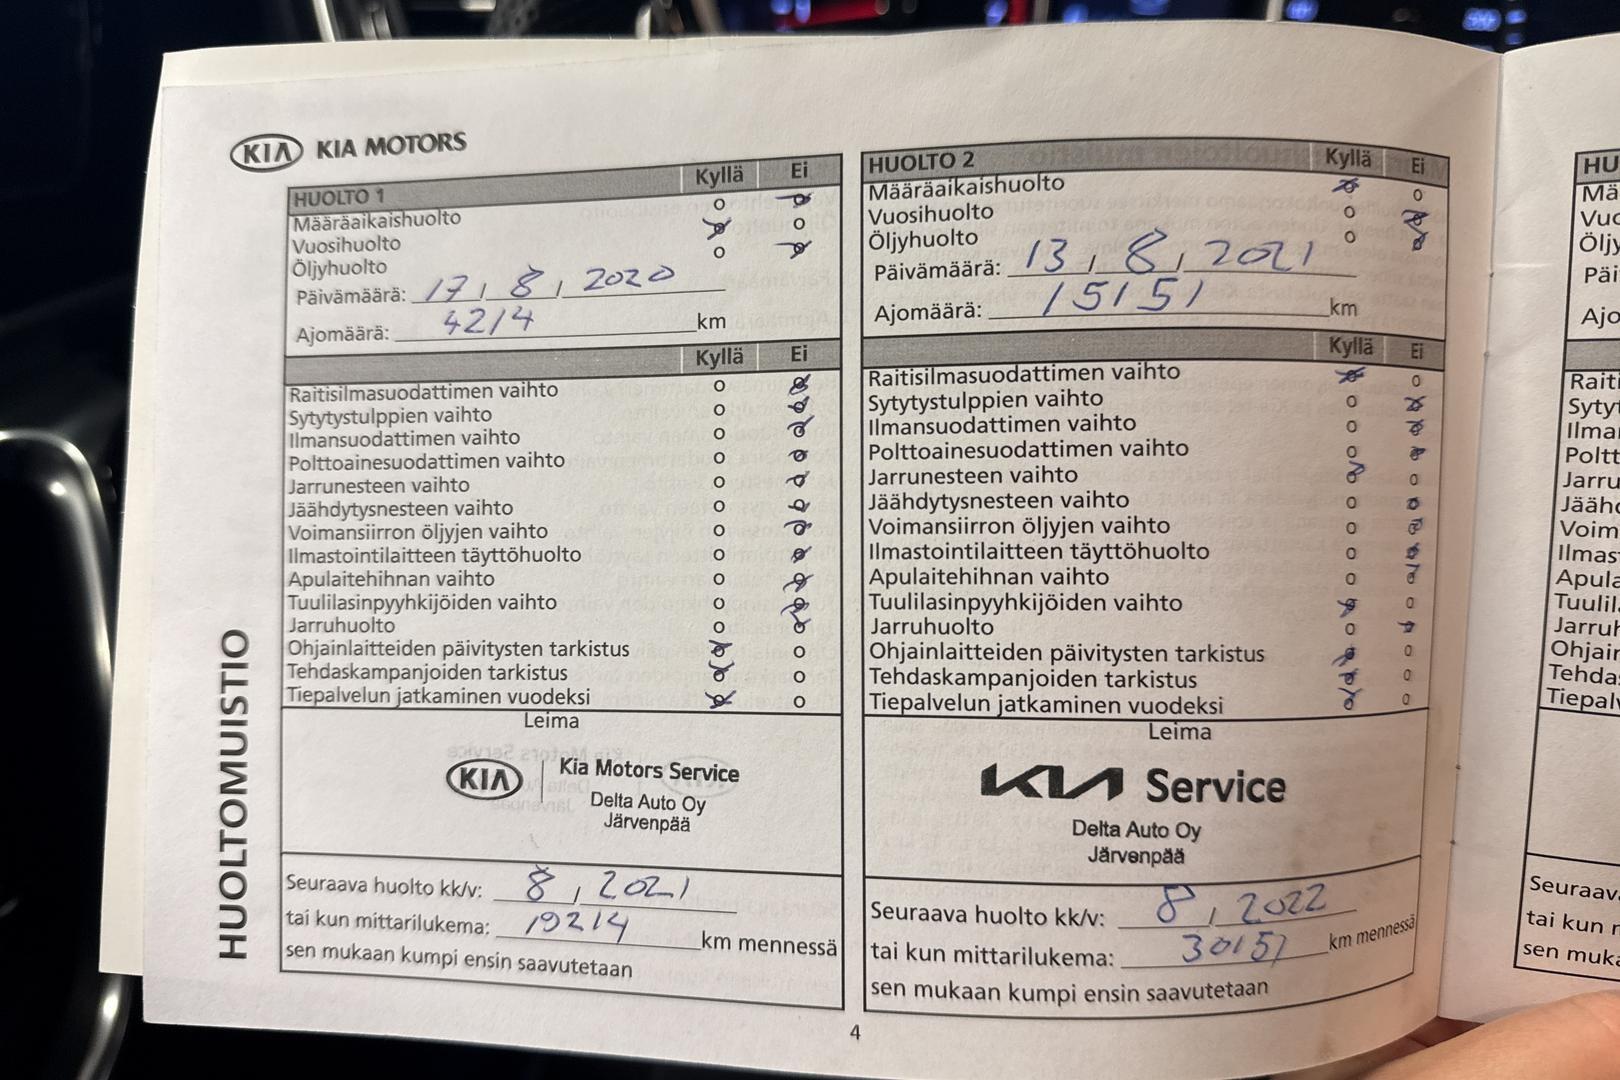 KIA KIA MOTORS
HUOLTO 1 Kyllä Ei
Määräaikaishuolto
Vuosihuolto
Öljyhuolto
Päivämäärä: 17, 8, 2020
Ajomäärä: 4214 km
Kyllä Ei
Raitisilmasuodattimen vaihto
Sytytystulppien vaihto
Ilmansuodattimen vaihto
Polttoainesuodattimen vaihto
Jarrunesteen vaihto
Jäähdytysnesteen vaihto
Voimansiirron öljyjen vaihto
Ilmastointilaitteen täyttöhuolto
Apulaitehihnan vaihto
Tuulilasinpyyhkijöiden vaihto
Jarruhuolto
Ohjainlaitteiden päivitysten tarkistus
Tehdaskampanjoiden tarkistus
Tiepalvelun jatkaminen vuodeksi
Leima
KIA Kia Motors Service
Delta Auto Oy
Järvenpää
Seuraava huolto kk/v: 8, 2021
tai kun mittarilukema: 19214 km mennessä
sen mukaan kumpi ensin saavutetaan
HUOLTOMUISTIO
HUOLTO 2 Kyllä Ei
Määräaikaishuolto
Vuosihuolto
Öljyhuolto
Päivämäärä: 13, 8, 2021
Ajomäärä: 15151 km
Kyllä Ei
Raitisilmasuodattimen vaihto
Sytytystulppien vaihto
Ilmansuodattimen vaihto
Polttoainesuodattimen vaihto
Jarrunesteen vaihto
Jäähdytysnesteen vaihto
Voimansiirron öljyjen vaihto
Ilmastointilaitteen täyttöhuolto
Apulaitehihnan vaihto
Tuulilasinpyyhkijöiden vaihto
Jarruhuolto
Ohjainlaitteiden päivitysten tarkistus
Tehdaskampanjoiden tarkistus
Tiepalvelun jatkaminen vuodeksi
Leima
KIA Service
Delta Auto Oy
Järvenpää
Seuraava huolto kk/v: 8, 2022
tai kun mittarilukema: 30151 km mennessä
sen mukaan kumpi ensin saavutetaan
4